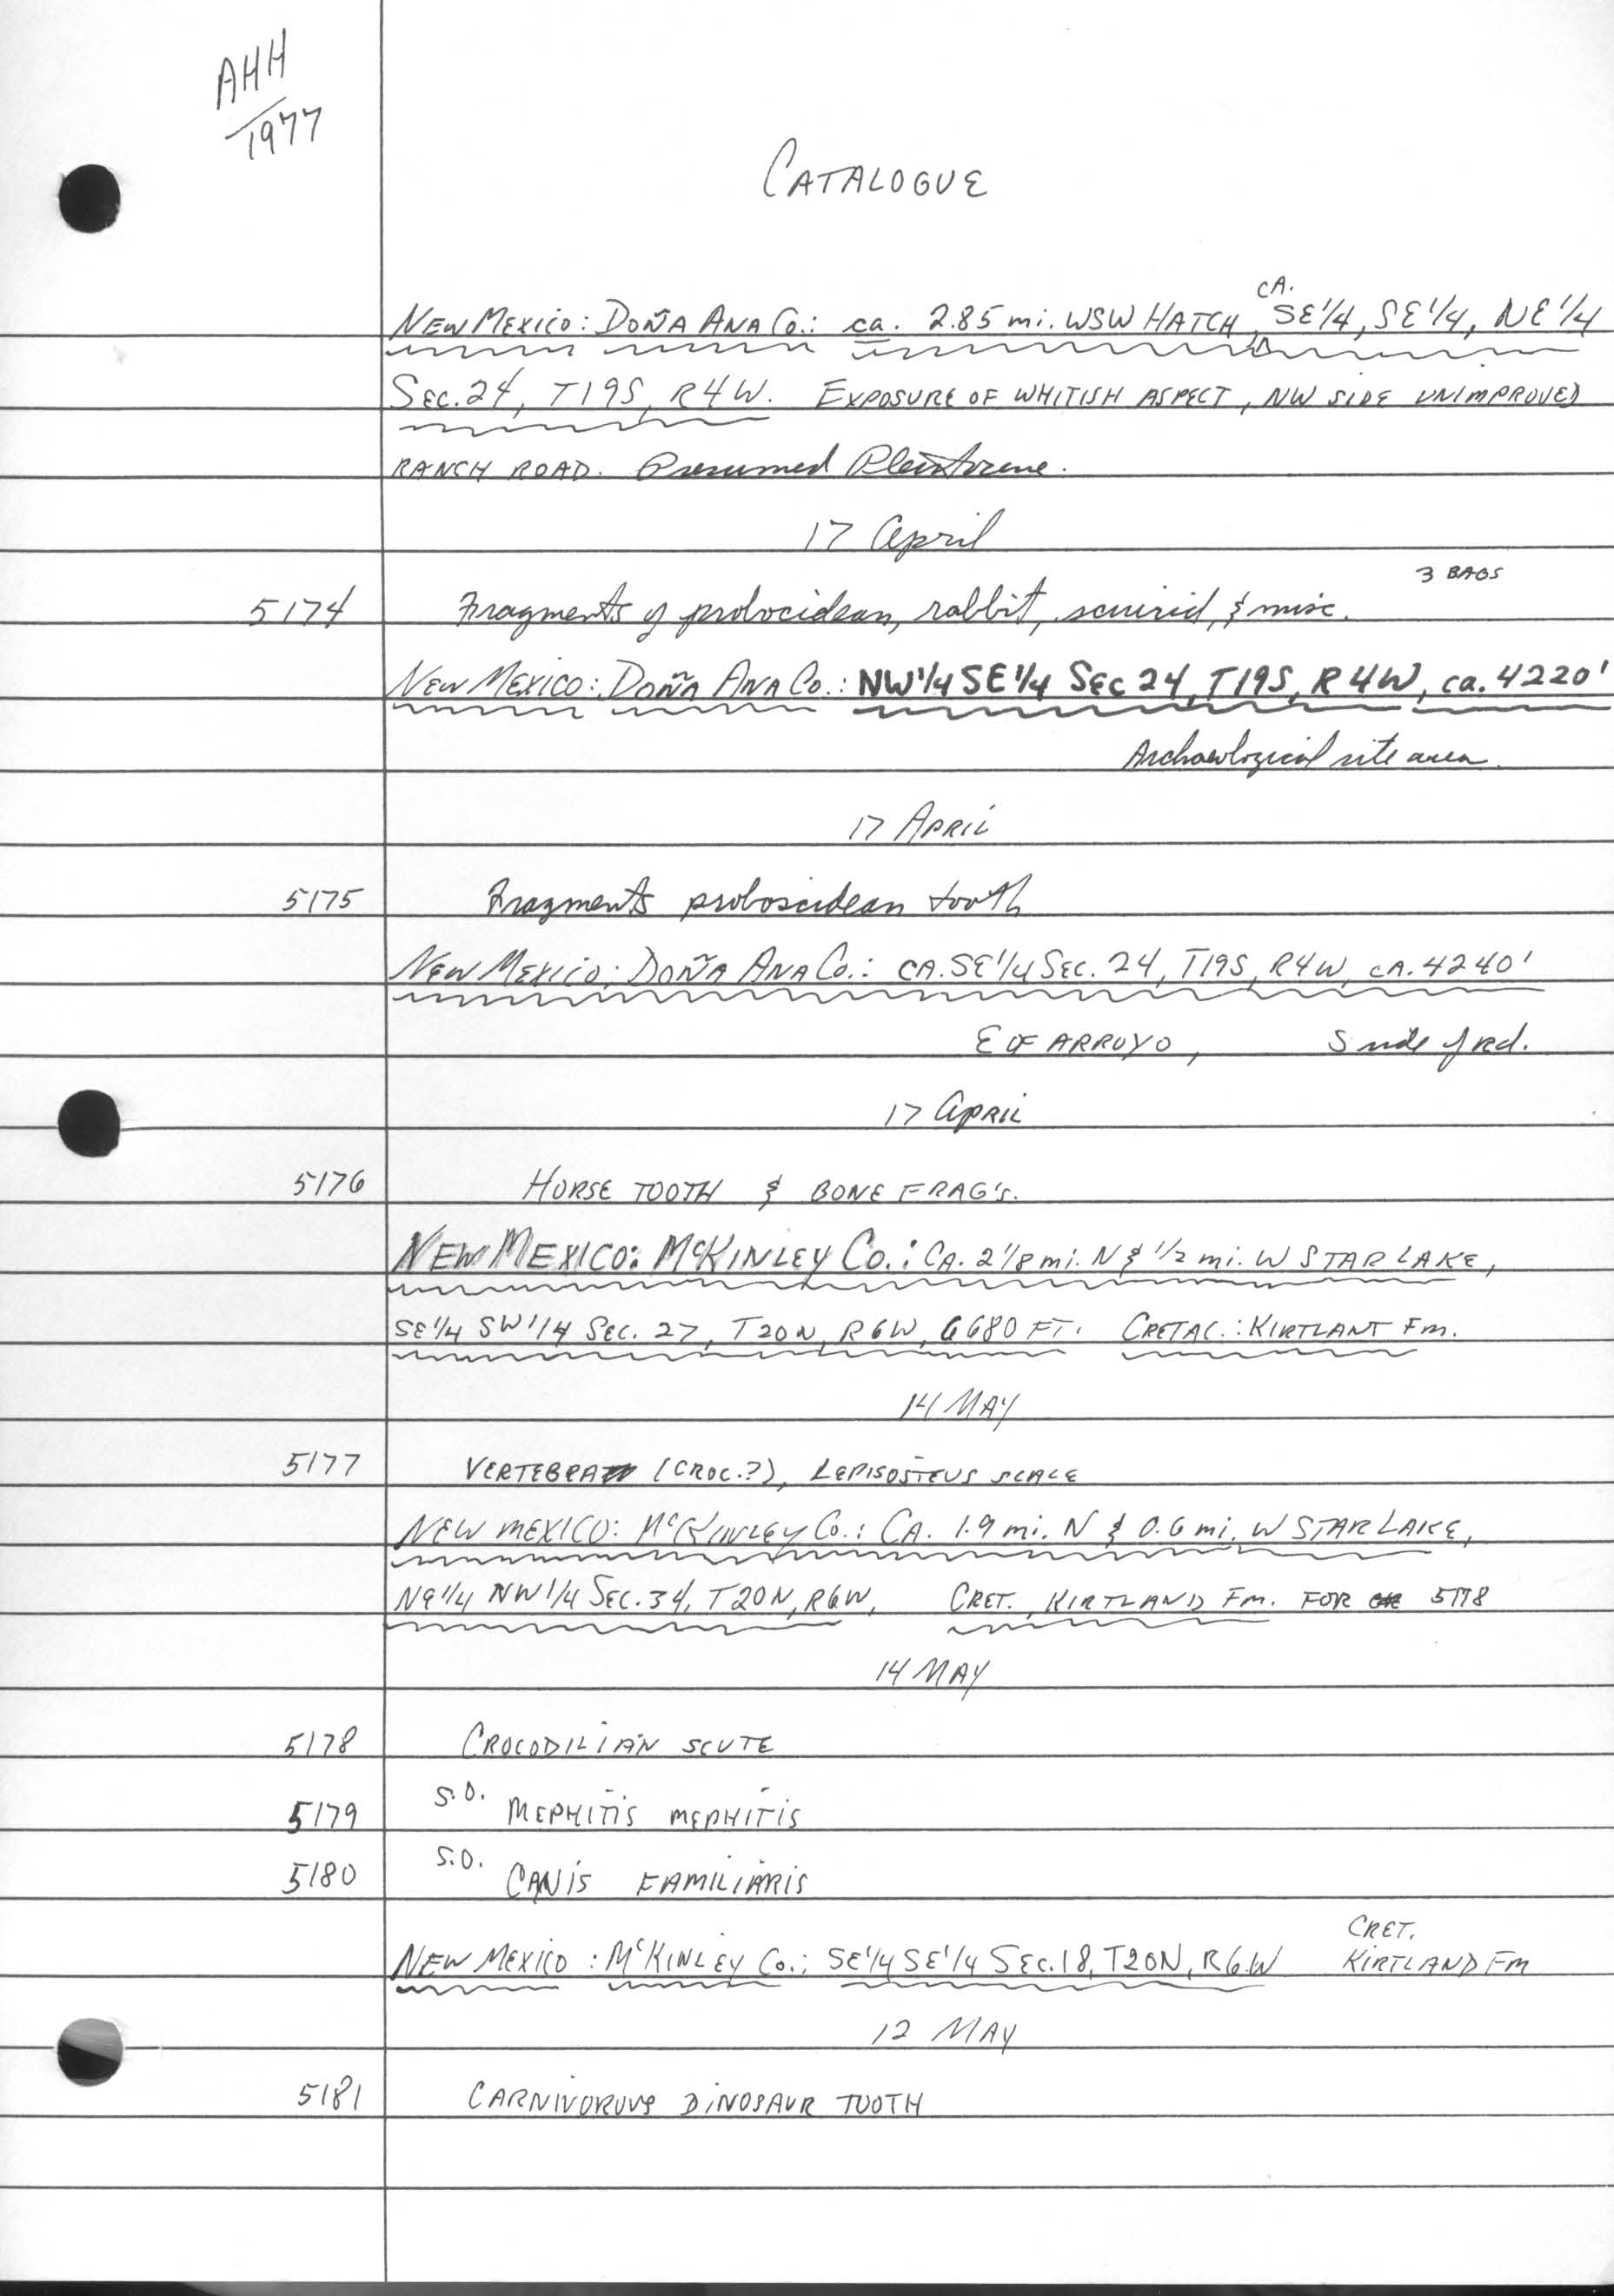 AHH
1977
CATALOGUE
NEW MEXICO: DOÑA ANA Co.: ca. 2.85 mi. WSW HATCH, CA. SE1/4, SE1/4, NE1/4
SEC. 24, T19S, R4W. EXPOSURE OF WHITISH ASPECT, NW SIDE UNIMPROVED
RANCH ROAD. Presumed Pleistocene.
17 April
3 BAGS
5174 Fragments of probocidean, rabbit, sciurid, & misc.
NEW MEXICO: DOÑA ANA Co.: NW1/4 SE1/4 SEC 24, T19S, R4W, ca. 4220'
Archaeological site area.
17 APRIL
5175 Fragments proboscidean tooth
NEW MEXICO: DOÑA ANA Co.: CA. SE1/4 SEC. 24, T19S, R4W, CA. 4240'
E OF ARROYO, S side of rd.
17 APRIL
5176 HORSE TOOTH & BONE FRAG'S.
NEW MEXICO: McKINLEY Co.: CA. 2 1/8 mi. N & 1/2 mi. W STAR LAKE,
SE1/4 SW1/4 SEC. 27, T20N, R6W, 6680 FT. CRETAC.: KIRTLANT Fm.
14 MAY
5177 VERTEBRA (CROC.?), LEPISOSTEUS SCALE
NEW MEXICO: McKINLEY Co.: CA. 1.9 mi. N & 0.6 mi. W STAR LAKE,
NE1/4 NW1/4 SEC. 34, T20N, R6W, CRET., KIRTLAND Fm. FOR 5178
14 MAY
5178 CROCODILIAN SCUTE
5179 S.O. MEPHITIS MEPHITIS
5180 S.O. CANIS FAMILIARIS
CRET.
NEW MEXICO: McKINLEY Co.; SE1/4 SE1/4 SEC. 18, T20N, R6W KIRTLAND FM
12 MAY
5181 CARNIVOROUS DINOSAUR TOOTH